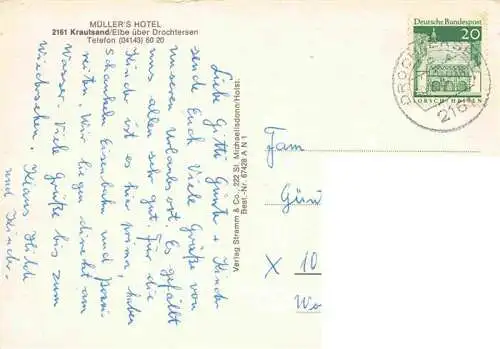 MÜLLER'S HOTEL
2161 Krautsand/Elbe über Drochtersen
Telefon (04143) 60 20
Deutsche Bundespost
20
LORSCH/HESSEN
DROCHTERSEN
216
Liebe Gitti Günth. + Kinder
sende Euch Viele Grüße von
unseren Urlaubsort. Es gefällt
uns allen sehr gut. Für die
Kinder ist es hier prima, haben
Schaukeln Eisenbahn und Ponni
reiten. Wir liegen direkt am
Wasser. Viele Grüße bis zum
Wiedersehen. Klaus Hilde
und Kinder.
Verlag Stramm & Co., 222 St. Michaelisdonn/Holst.
Best.-Nr. 67428 A N 1
Fam
Gün
X 10